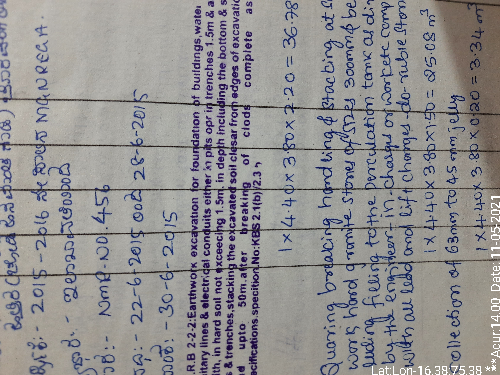 2015-2016 ನೇ ಸಾಲಿನ MGNREGA.
NMR NO. 456
22-6-2015 ರಿಂದ 28-6-2015
30-6-2015
.R.B 2-2-2:Earthwork excavation for foundation of buildings,water
itary lines & electrical conduits either in pits opr in trenches 1.5m & a
th, in hard soil not exceecing 1.5m. in depth including the bottom & s
s & trenches,stacking the excavated soil clesar from edges of excavatio
d upto 50m.after breaking of clods complete as
acifications.specition.No:KBS 2.1(b)/2.3
1 x 4.40 x 3.80 x 2.20 = 36.78
Quarring breacing handling & stacking at
work hand granite stones of sizes 300mm & be
luding filling to the perculation tank as di
by the engineer-in-charges on work etc comp
with all lead and lift charges-do-ruble ston
1 x 4.40 x 3.80 x 1.50 = 25.08 m³
collection of 63mm to 45mm jelly
1 x 4.40 x 3.80 x 0.20 = 3.34 m³
Lat Lon-16.38,75.38 ***Acur14.00 Date: 11-05-2021